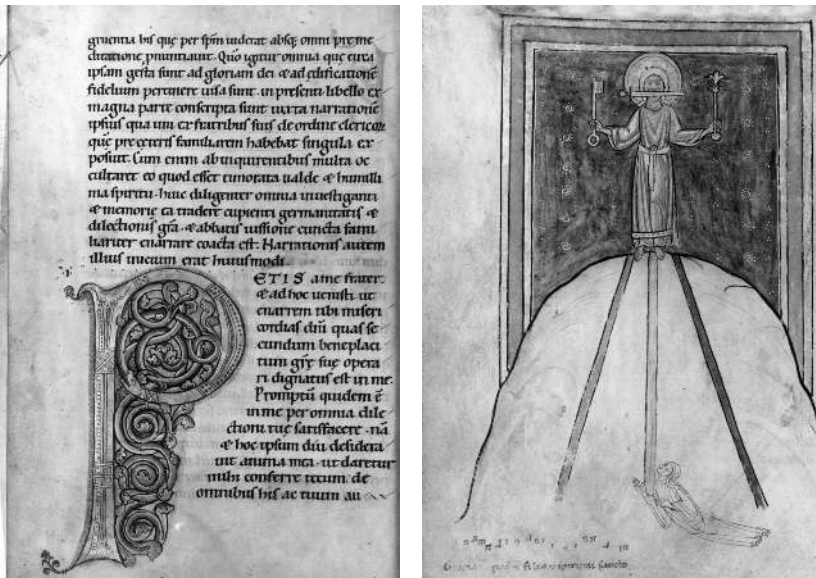 gruentia his que per spm uiderat absq; omni preme
ditatione pnuntiauit. Quō igitur omnia que circa
ipsam gesta sunt ad gloriam dei & ad edificationē
fidelium pertinere uisa sunt. in presenti libello ex
magna parte conscripta sunt iuxta narrationē
ipsius qua uni ex fratribus suis de ordine clericoꝝ
que pre ceteris familiarem habebat singula ex
posuit. Cum enim ab inquirentibus multa oc
cultaret eo quod esset timorata ualde & humilli
ma spiritu. huic diligenter omnia inuestiganti
& memorie ea tradere cupienti germanitatis &
dilectionis gr̄a. & abbatis iussione cuncta fami
liariter enarrare coacta est. Narrationis autem
illius inicium erat huiusmodi.
PETIS a me frater.
& ad hoc uenisti ut
enarrem tibi miseri
cordias dn̄i quas se
cundum beneplaci
tum gr̄e sue opera
ri dignatus est in me.
Promptū quidem ē
in me per omnia dile
ctioni tue satisfacere. nā
& hoc ipsum diu desidera
uit anima mea. ut daretur
mihi conferre tecum de
omnibus his ac tuum au